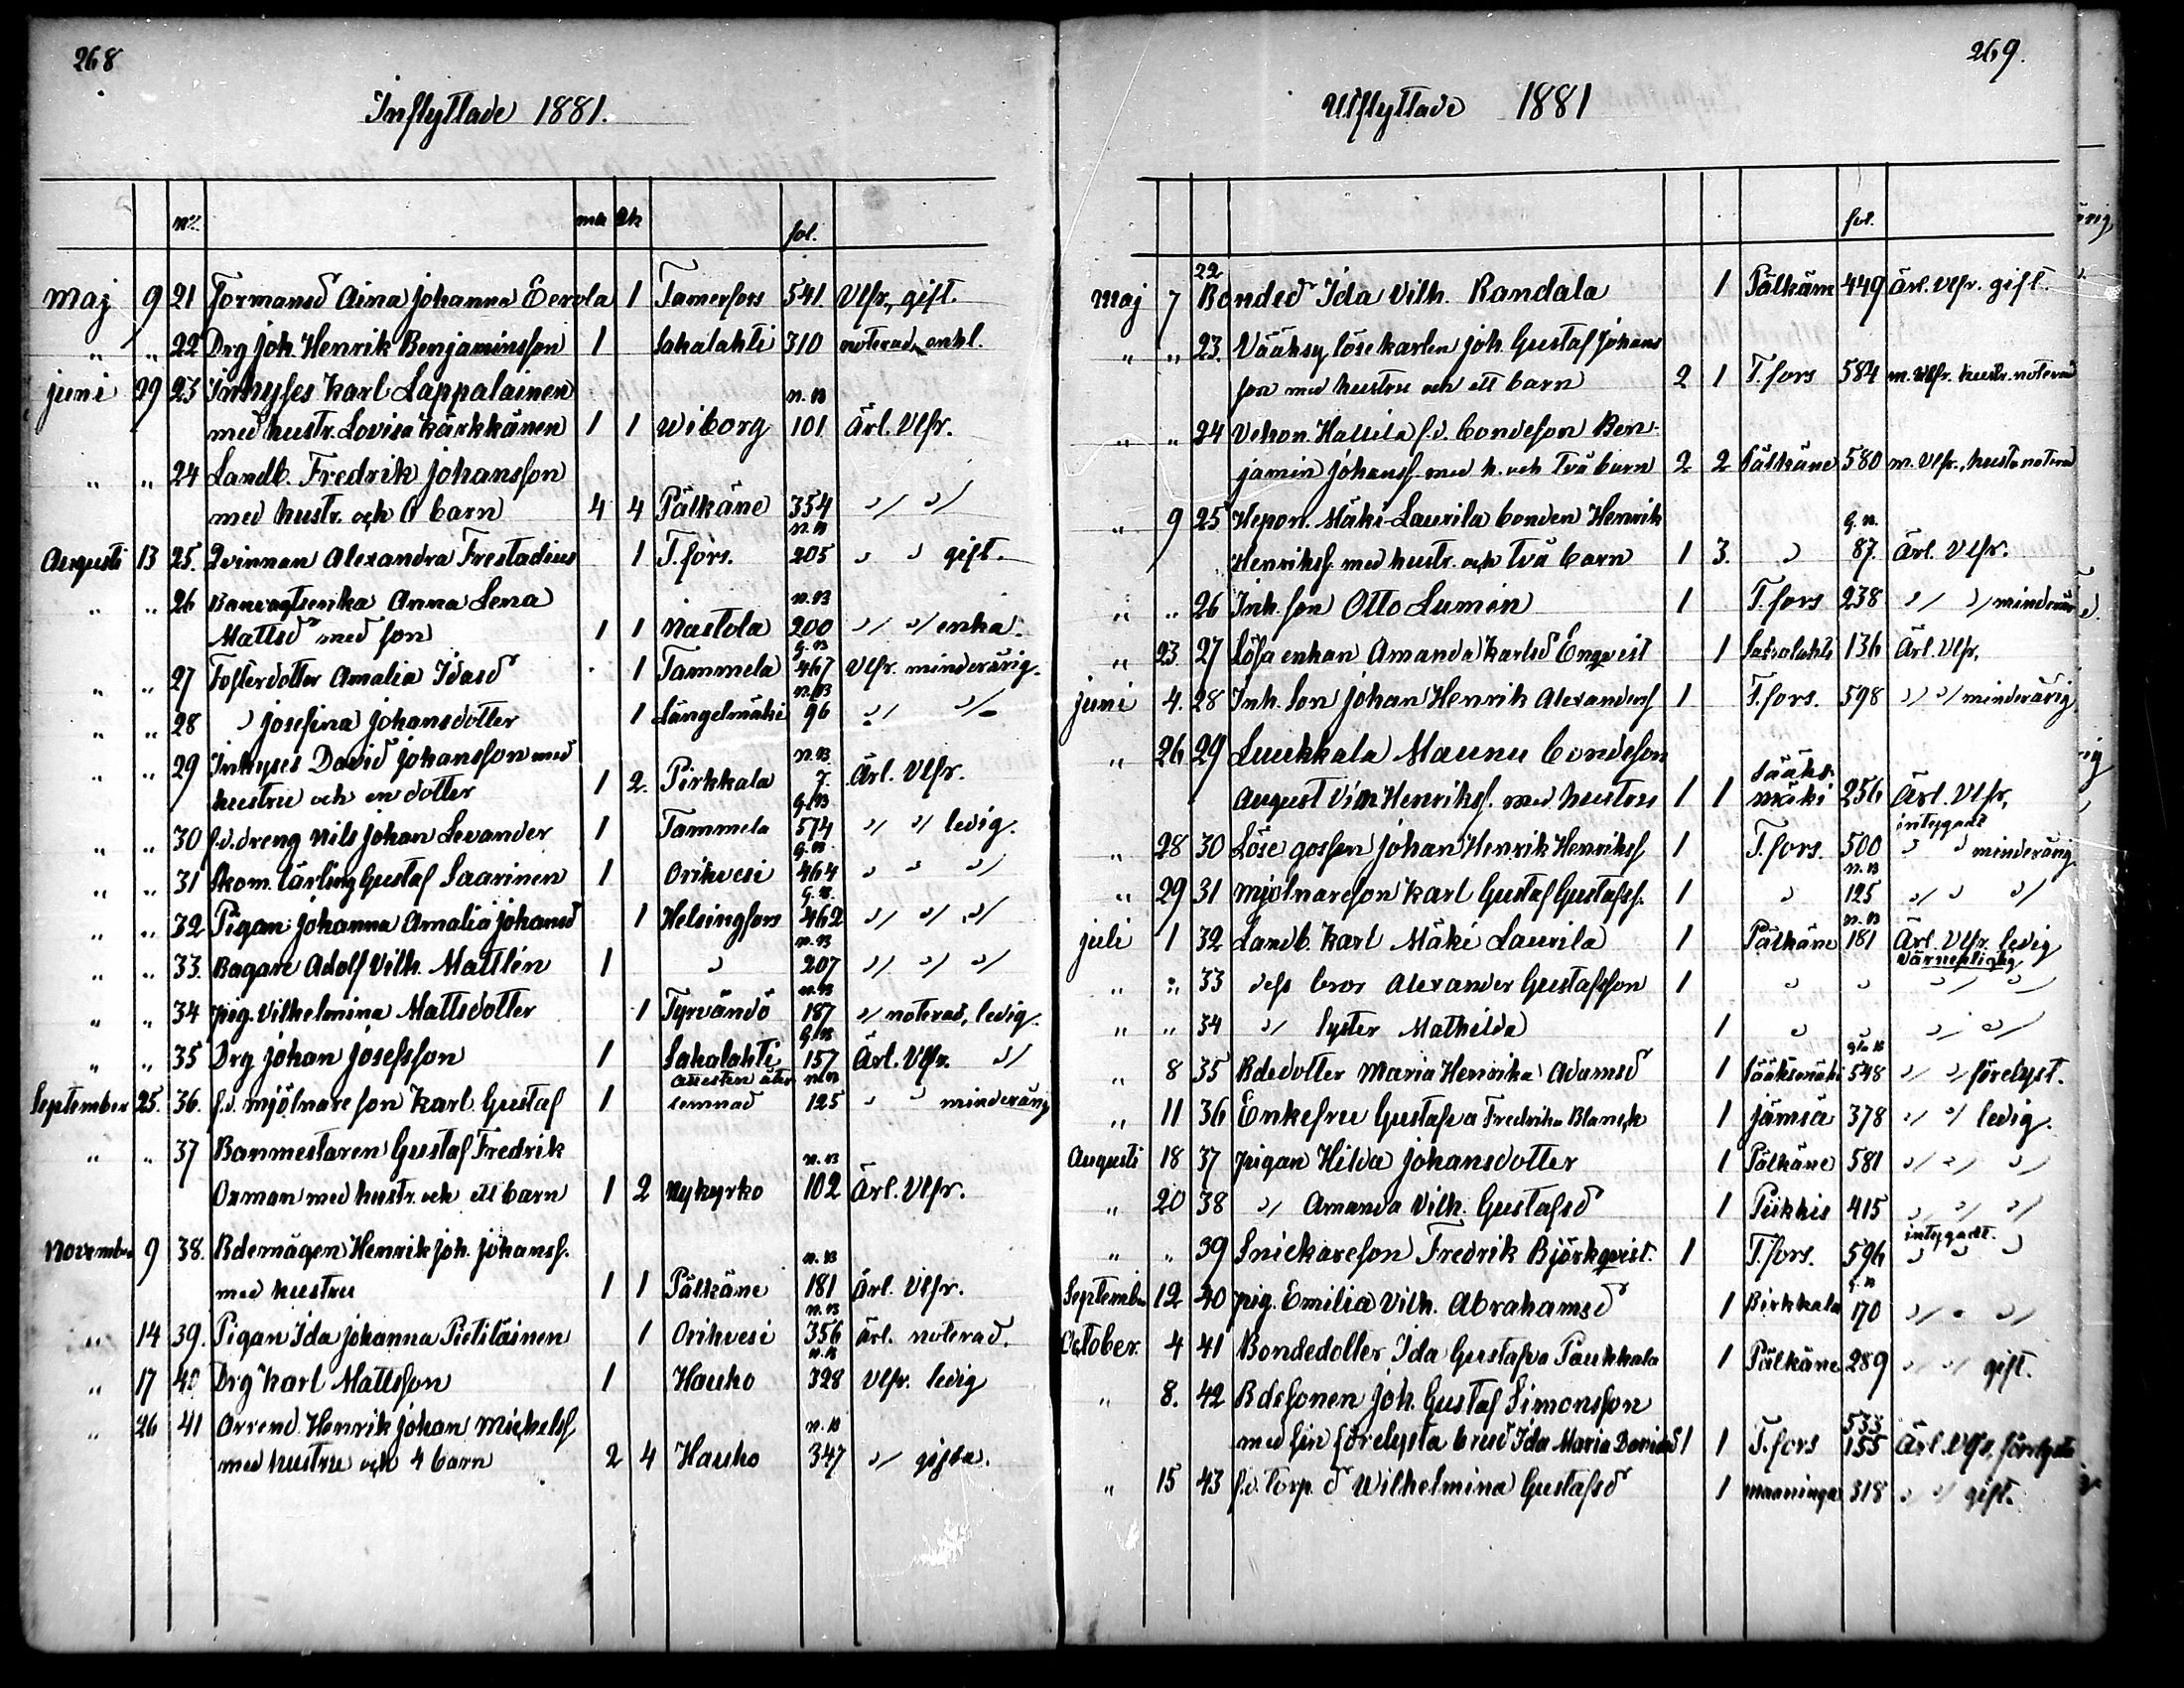 268
Inflyttade 1881.
no. mk qk fol.
Maj 9 21 Formansd Aina Johanna Eerola 1 Tamerfors 541 Vlfr, gift.
" " 22 Drg Joh. Henrik Benjaminsson 1 Sahalahti 310 noterad, enkl.
Juni 29 23 Inhyses Karl Lappalainen n.B
med hustr. Lovisa Kärkkänen 1 1 Wiborg 101 Ärl. Vlfr.
" " 24 Landb. Fredrik Johansson
med hustr. och 6 barn 4 4 Pälkäne 354 " "
n.B
Augusti 13 25. Qvinnan Alexandra Frestadius 1 T.fors. 205 " " gift.
" " 26 Banvagtsenka Anna Lena n.B
Mattsd med son 1 1 Nastola 200 " " enka.
G.B
" " 27 Fosterdotter Amalia Idasd 1 Tammela 467 Vlfr. minderårig.
n.B
" " 28 " Josefina Johansdotter 1 Längelmäki 96 " "
" " 29 Inhyses David Johansson med n.B
hustru och en dotter 1 2. Pirkkala 7. Ärl. Vlfr.
G.B
" " 30 f.d. dreng Nils Johan Levander 1 Tammela 574 " " ledig.
G.B
" " 31 Skom. lärling Gustaf Saarinen 1 Orihvesi 464 " " "
G.B.
" " 32 Pigan Johanna Amalia Johansd 1 Helsingfors 462 " " "
n.B
" " 33. Bagare Adolf Vilh. Mattlin 1 " 207 " " "
n.B
" " 34 pig. Vilhelmina Mattsdotter 1 Tyrvändö 187 " noterad, ledig.
G.B
" " 35 Drg Johan Josefsson 1 Sahalahti 157 Ärl. Vlfr. "
attesten åter n.B
September 25. 36. f.d. mjölnare son Karl Gustaf 1 lemnad 125 " " minderårig
" " 37 Banmestaren Gustaf Fredrik n.B
Oxman med hustr. och ett barn 1 2 Nykyrko 102 Ärl. Vlfr.
November 9 38. Bdemågen Henrik Joh. Johanss. n.B
med hustru 1 1 Pälkäne 181 Ärl. Vlfr.
n.B
" 14 39. Pigan Ida Johanna Pietiläinen 1 Orihvesi 356 ärl. noterad.
n.B
" 17 40 Drg Karl Mattsson 1 Hauho 328 Vlfr. ledig
" 26 41 Arrend. Henrik Johan Michelss n.B
med hustru och 4 barn 2 4 Hauho 347 " gifta.
269.
Utflyttade 1881
fol.
Maj 7 22 Bonded Ida Vilh. Randala 1 Pälkäne 449 Ärl. Vlfr. gift.
" " 23. Vääksy lösekarlen Joh. Gustaf Johans
son med hustru och ett barn 2 1 T.fors 584 m. Vlfr. hustr. noterad
" " 24 Vehon. Hallila f.d. bondeson Ben-
jamin Johanss. med h. och två barn 2 2 Pälkäne 580 m. Vlfr., hustr noterad
" 9 25 Hepon. Mäki-Laurila bonden Henrik G.n.
Henrikss. med hustr. och två barn 1 3. " 87. Ärl. Vlfr.
" " 26 Inh. son Otto Lumén 1 T.fors 238 " " minderår
" 23. 27 Lösa enkan Amanda Karlsd Enqvist 1 Sahalahti 136 Ärl. Vlfr.
Juni 4. 28 Inh. son Johan Henrik Alexanderss 1 T.fors. 598 " " minderårig
" 26 29 Luukkala Maunu bondeson
August Vilh Henrikss. med hustru 1 1 Sääks-mäki 256 Ärl. Vlfr.
intygadt
" 28 30 Löse gossen Johan Henrik Henrikss. 1 T.fors. 500 " " minderårig
n.B
" 29 31 Mjölnareson Karl Gustaf Gustafss. 1 " 125 " " "
n.B
Juli 1 32 Landb. Karl Mäki Laurila 1 Pälkäne 181 Ärl. Vlfr. ledig
värnepligtig
" " 33 dess bror Alexander Gustafsson 1 " " " "
" " 34 " Syster Mathilda 1 " " " "
" 8 35 Bdedotter Maria Henrika Adamsd 1 Sääksmäki 548 " " förelyst.
" 11 36 Enkefru Gustafva Fredrika Blansk 1 Jämsä 378 " " ledig.
Augusti 18 37 pigan Hilda Johansdotter 1 Pälkäne 581 " " "
" 20 38 " Amanda Vilh. Gustafsd 1 Piikkis 415 " " "
intygadt.
" " 39 Snickareson Fredrik Björkqvist. 1 T.fors. 596 " " "
G.B
September 12 40 pig. Emilia Vilh. Abrahamsd 1 Birkkala 170 " " "
October. 4 41 Bondedotter Ida Gustafva Paukkala 1 Pälkäne 289 " " gift.
" 8. 42 Bdesonen Joh. Gustaf Simonsson 533
med sin förelysta brud Ida Maria Davidsd 1 1 T.fors 155 Ärl. Vlfr. förelysta
" 15 43 f.d. torp. d Wilhelmina Gustafsd 1 Maaninga 318 " " gift.